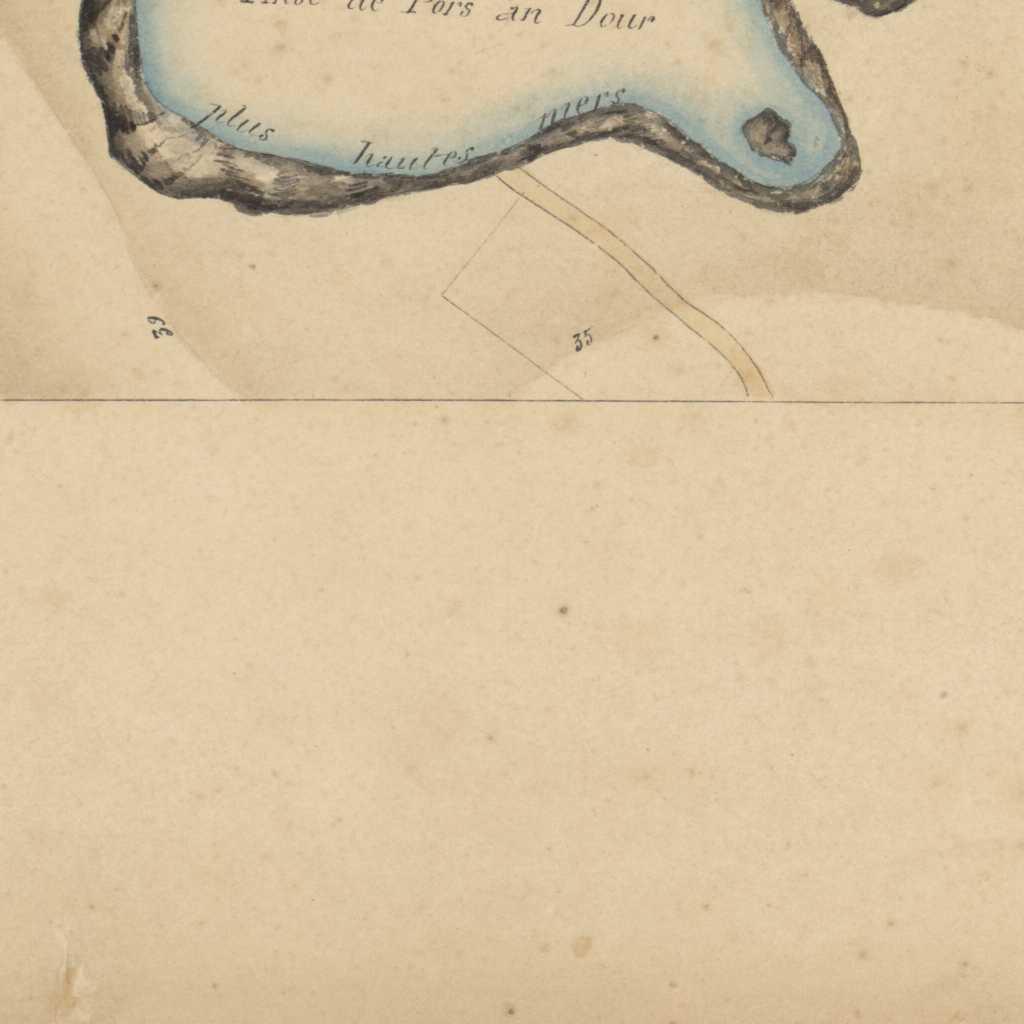 Anse de Pors an Dour
plus hautes mers
39
35